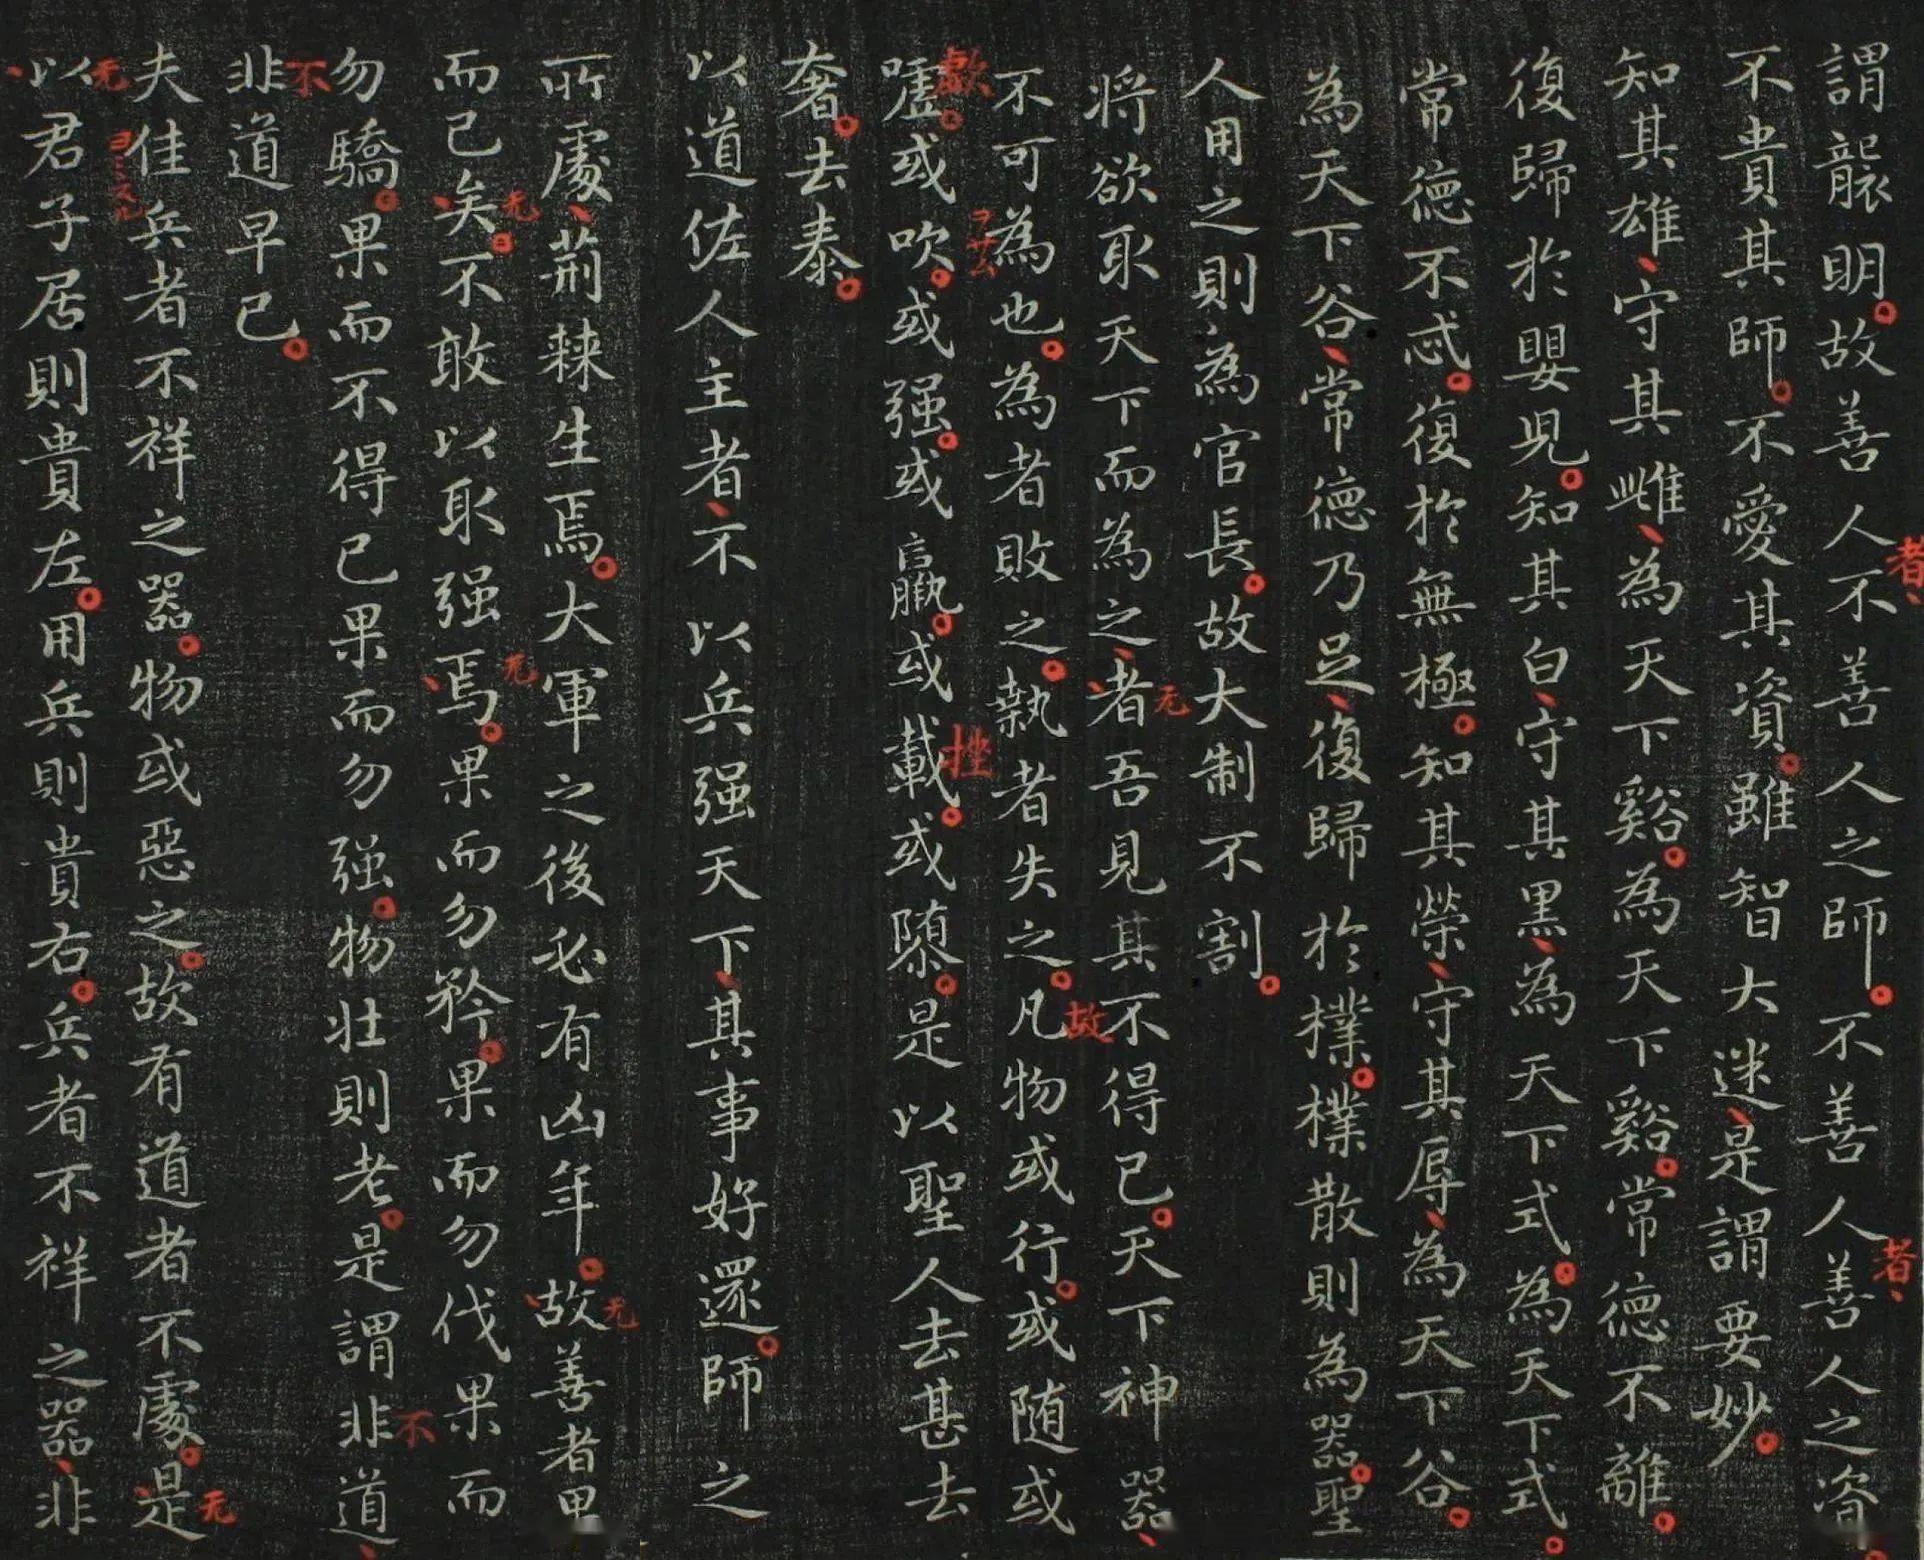 謂襲明故善人不善人之師不善人善人之資
不貴其師不愛其資雖智大迷是謂要妙
知其雄守其雌為天下谿為天下谿常德不離
復歸於嬰兒知其白守其黑為天下式為天下式
常德不忒復於無極知其榮守其辱為天下谷
為天下谷常德乃足復歸於樸樸散則為器聖
人用之則為官長故大制不割
將欲取天下而為之者吾見其不得已天下神器
不可為也為者敗之執者失之凡物或行或随或
噓或吹或强或羸或載或隳是以聖人去甚去
奢去泰
以道佐人主者不以兵强天下其事好還師之
所處荊棘生焉大軍之後必有凶年故善者果
而已矣不敢以取强焉果而勿矜果而勿伐果而
勿驕果而不得已果而勿强物壯則老是謂非道
非道早已
夫佳兵者不祥之器物或惡之故有道者不處是
以君子居則貴左用兵則貴右兵者不祥之器非
者
者
无
故
歔
挫
无
无
无
不
不
无
无